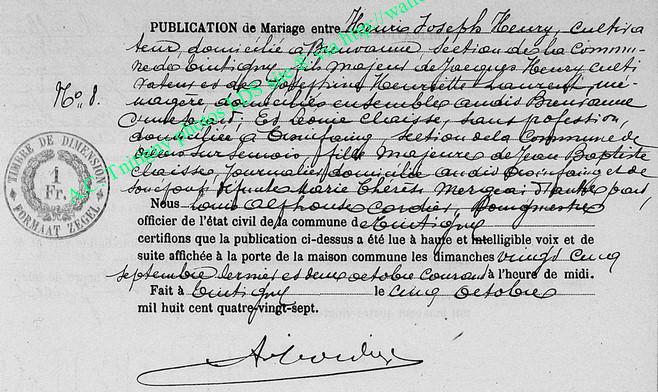 PUBLICATION de Mariage entre Henri Joseph Henry, cultiva
teur, domicilié à Breuvanne section de la Commu-
ne de Tintigny fils majeur de Jacques Henry culti
vateur et de Joséphine Henriette Laurent, mé-
nagère, domiciliés ensemble audit Breuvanne
d'une part; Et Léonie Chaisse, sans profession,
domiciliée à section de la Commune de
sur Semois, fille majeure de Jean Baptiste
Chaisse, journalier, domicilié audit et de
son épouse défunte Marie Thérèse d'autre part,
No. 8.
TIMBRE DE DIMENSION
1
Fr.
FORMAAT ZEGEL
Nous Louis Alphonse Cordier, Bourgmestre
officier de l'état civil de la commune de Tintigny
certifions que la publication ci-dessus a été lue à haute et intelligible voix et de
suite affichée à la porte de la maison commune les dimanches vingt cinq
septembre dernier et deux octobre courant à l'heure de midi.
Fait à Tintigny le cinq octobre
mil huit cent quatre-vingt-sept.
A. Cordier
photos LDS site & via http://